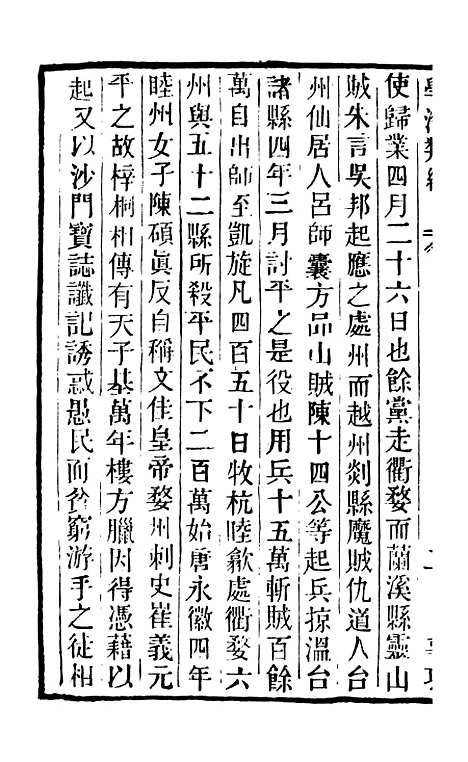 使歸業四月二十六日也餘黨走衢婺而蘭溪縣靈山
賊朱言吳邦起應之處州而越州剡縣魔賊仇道人台
州仙居人呂師囊方品山賊陳十四公等起兵掠溫台
諸縣四年三月討平之是役也用兵十五萬斬賊百餘
萬自出師至凱旋凡四百五十日牧杭睦歙處衢婺六
州與五十二縣所殺平民不下二百萬始唐永徽四年
睦州女子陳碩眞反自稱文佳皇帝婺州刺史崔義元
平之故梓桐相傳有天子基萬年樓方臘因得憑藉以
起又以沙門寶誌讖記誘惑愚民而貧窮游手之徒相